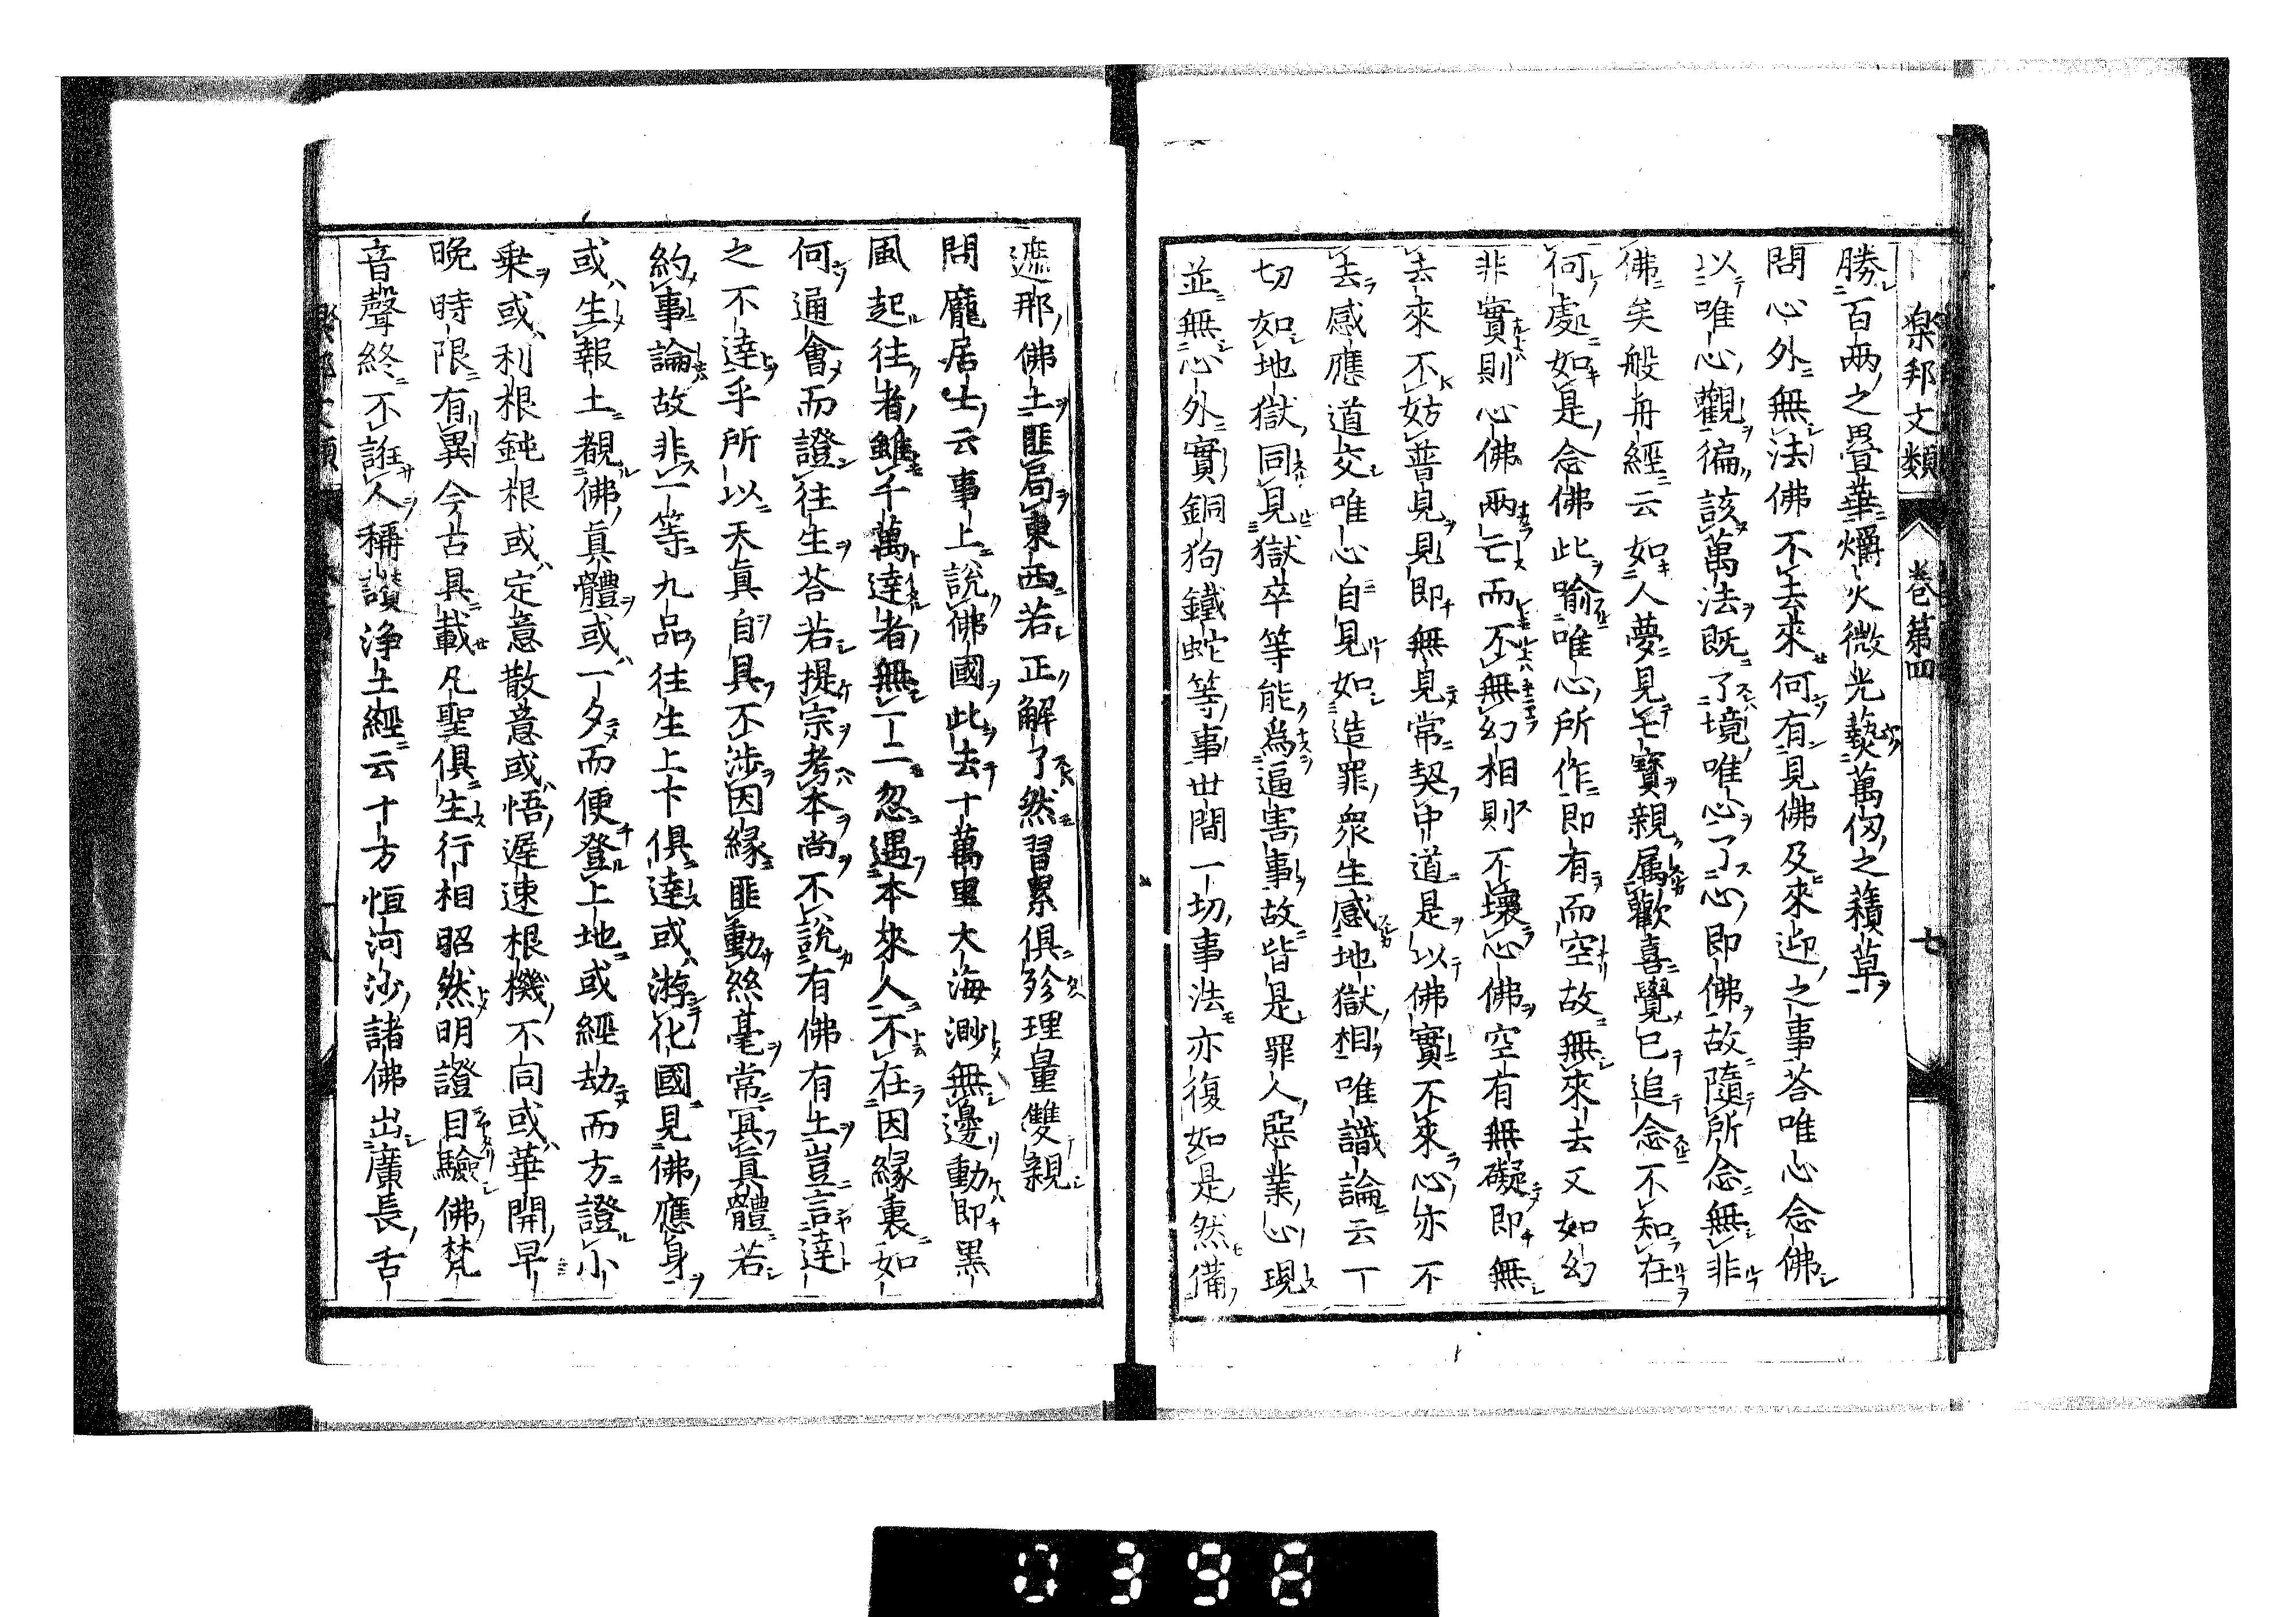 樂邦文類 卷第四 七
勝百兩之疊華爝火微光爇萬仭之積草
問心外無法佛不去來何有見佛及來迎之事荅唯心念佛
以唯心觀徧該萬法既了境唯心了心即佛故隨所念無非
佛矣般舟經云如人夢見七寶親属歡喜覺已追念不知在
何處如是念佛此喻唯心所作即有而空故無來去又如幻
非實則心佛兩亡而不無幻相則不壞心佛空有無礙即無
去來不妨普見見即無見常契中道是以佛實不來心亦不
去感應道交唯心自見如造罪衆生感地獄相唯識論云一
切如地獄同見獄卒等能為逼害事故皆是罪人惡業心現
並無心外實銅狗鐵蛇等事世間一切事法亦復如是然備
遮那佛土匪局東西若正解了然習累俱殄理量雙親
問龐居士云事上說佛國此去十萬里大海渺無邊動即黑
風起往者雖千萬達者無一二忽遇本來人不在因緣裏如
何通會而證往生荅若提宗考本尚不說有佛有土豈言達
之不達乎所以天真自具不涉因緣匪動絲毫常冥真體若
約事論故非一等九品往生上下俱達或游化國見佛應身
或生報土覩佛真體或一夕而便登上地或經劫而方證小
乗或利根鈍根或定意散意或悟遲速根機不同或華開早
晚時限有異今古具載凡聖俱生行相昭然明證目驗佛梵
音聲終不誑人稱讃淨土經云十方恒河沙諸佛出廣長舌
0398